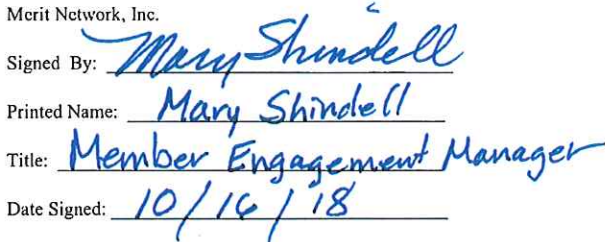 Merit Network, Inc.
Signed By: Mary Shindell
Printed Name: Mary Shindell
Title: Member Engagement Manager
Date Signed: 10/16/18